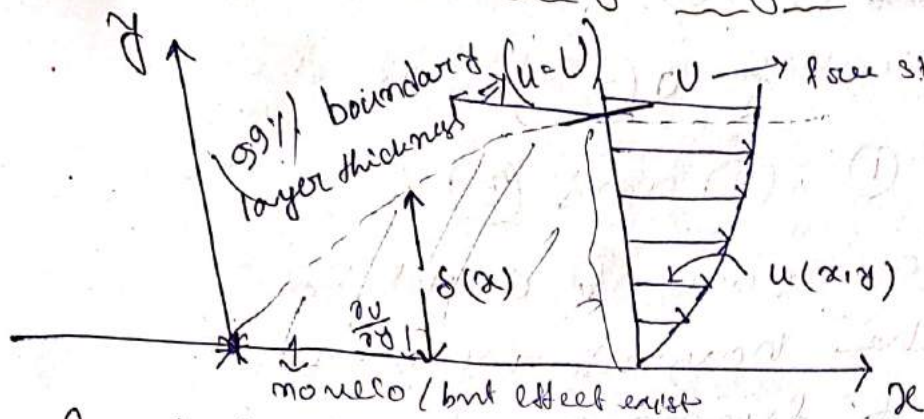 y
99% boundary
layer thickness
(u=U)
U → free st
δ(x)
u(x,y)
∂u/∂y
no velo / but effect exist
x